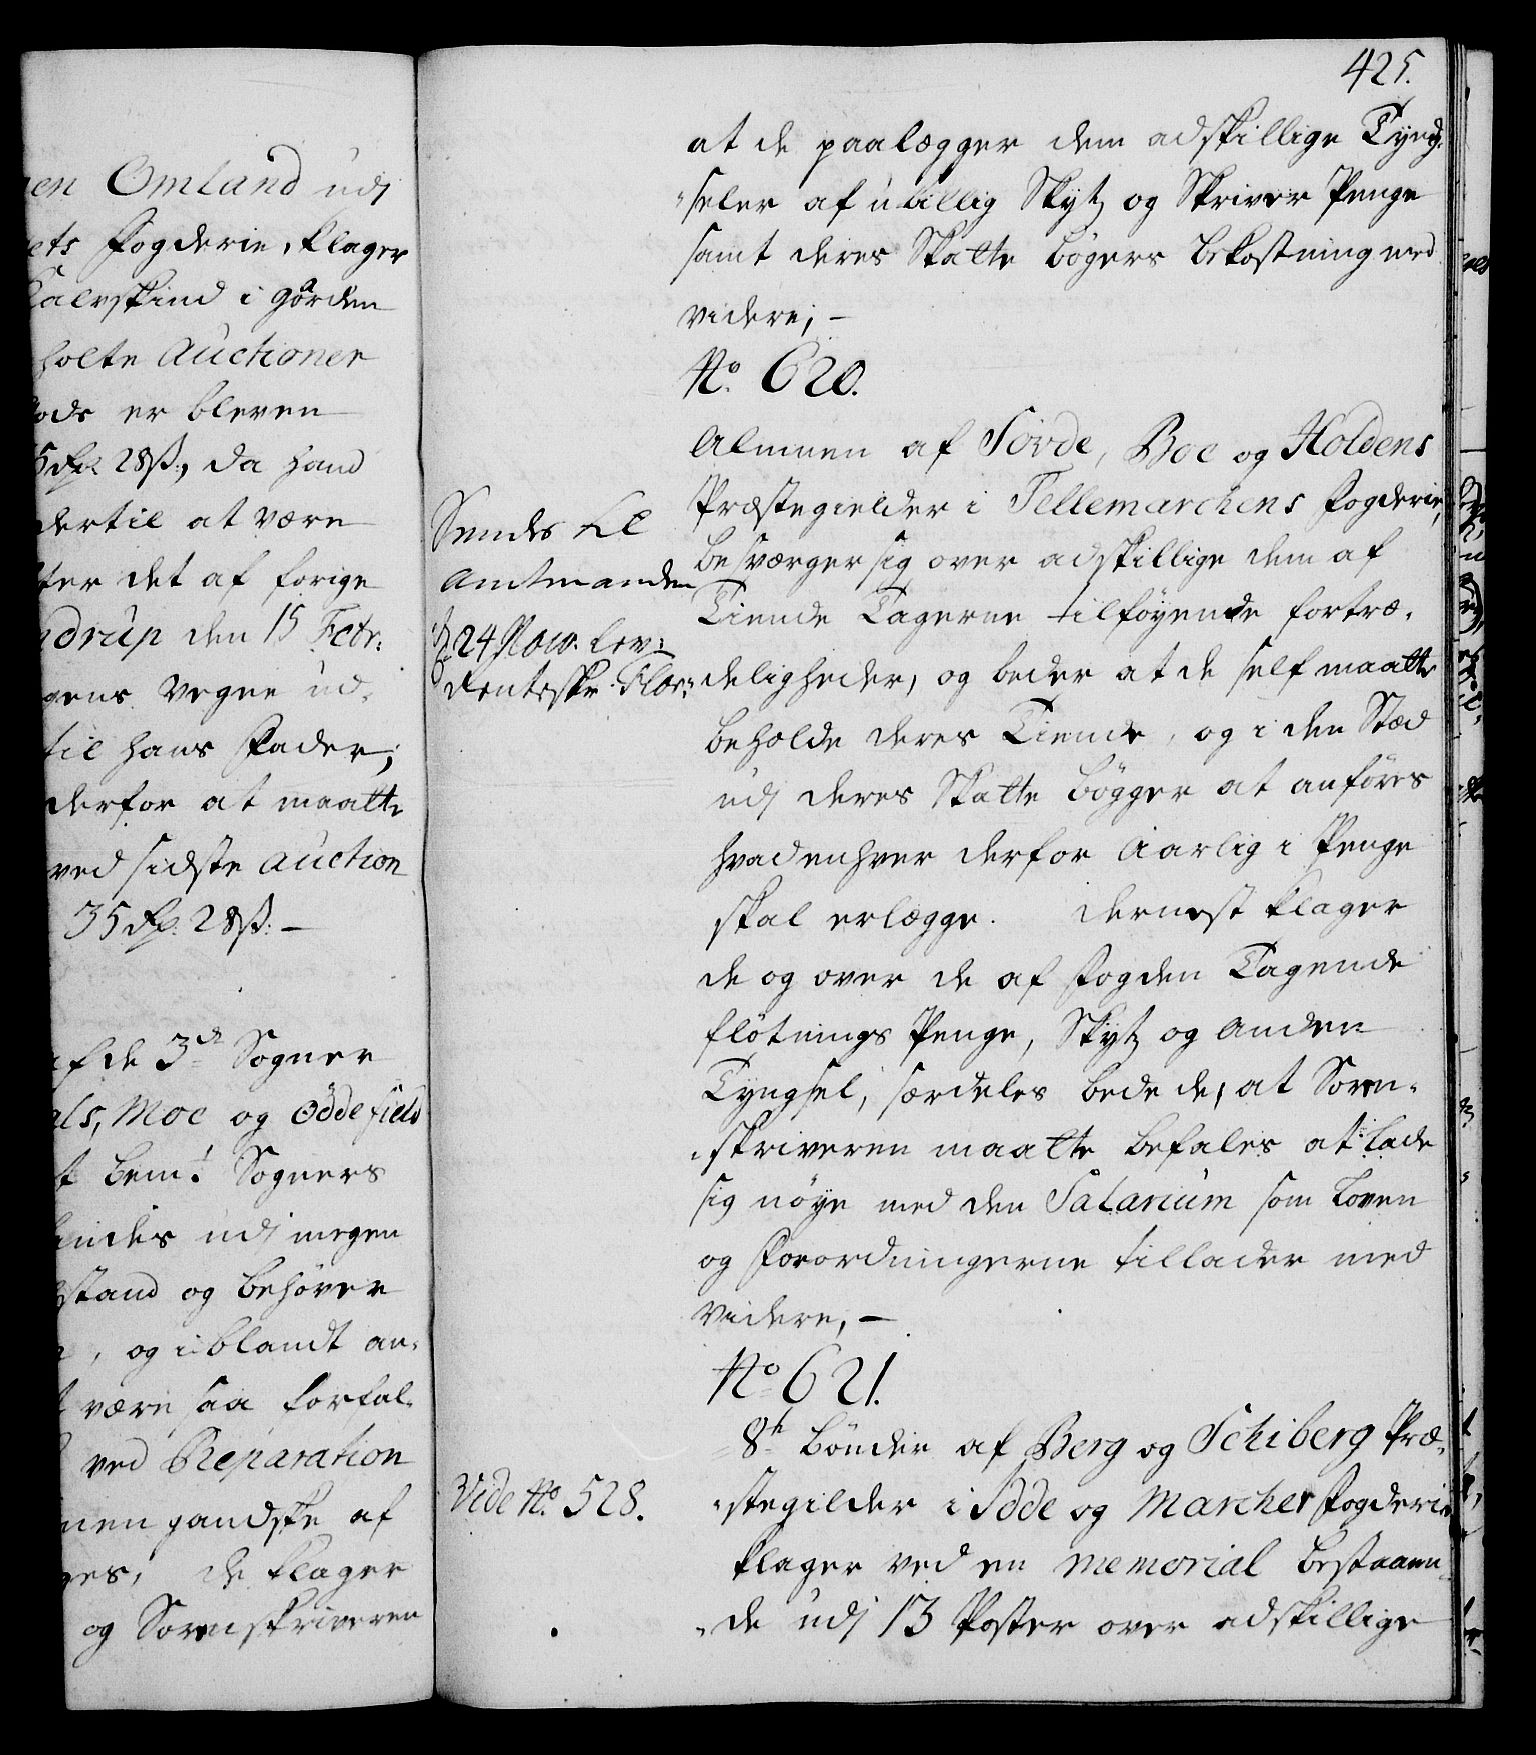 en Omland udj
ets Fogderie, klager
Kalvskind i gården
holte Auctioner
gods er bleven
5 Rdr. 28ß:, da hand
dertil at være
ter det af forige
drup den 15 Febr:
gens Vegne ud-
til hans Fader;
derfor at maatte
ved sidste Auction
35 Rdr. 28ß: —
af de 3de Sogner
als, Moe og Ödde field
t bemte Sogners
findes udj megen
stand og behöver
, og iblandt an-
t være saa forfal-
ved Reparation
men gandske af
ges, de klager
og Sorenskriveren
425.
at de paalegger dem adskillige Tyng-
seler af ubillig Skytz og Skriver Penge
samt deres Skatte bögers bekostning med
videre; —
No. 620.
Almuen af Sövde, Boe og Holdens
Præstegielder i Tellemarchens Fogderie,
besværger sig over adskillige dem af
Tiende Tagerne tilföyende fortræ-
deligheder, og beder at de self maatte
beholde deres Tiende, og i den Stæd
udj deres Skatte bögger at anföres
hvad enhver derfor Aarlig i Penge
skal erlegge. Dernest klager
de og over de af Fogden Tagende
flötnings Penge, Skytz og anden
Tyngsel, særdeles bede de, at Soren-
skriveren maatte befales at lade
sig nöye med den Salarium som Loven
og Forordningerne tillader med
videre, —
Sendes til
Amtmanden
d 24 Nov. lev:
Renteskr. Kloc:
No 621.
8te Bönder af Berg og Schiberg Præ-
stegilder i Idde og Marcher Fogderie
klager ved en Memorial bestaaen-
de udj 13 Poster over adskillige
Vide No. 528.